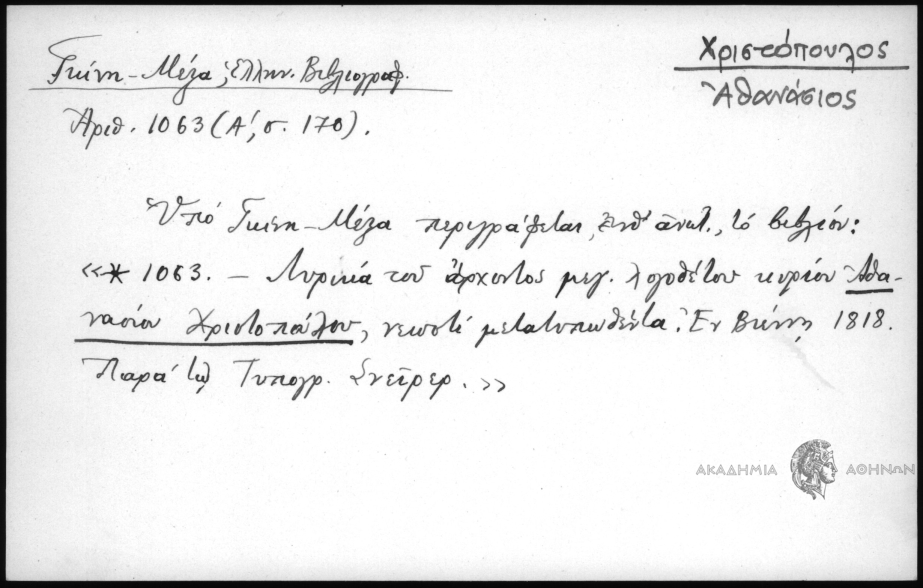 Χριστόπουλος
Ἀθανάσιος
Γκίνη-Μέξα, Ἑλλην. Βιβλιογραφ.
Ἀριθ. 1063 (Α', σ. 170).
Ὑπό Γκίνη-Μέξα περιγράφεται, ἔνθ' ἀνωτ., τό βιβλίον:
«* 1063. – Λυρικά τοῦ ἄρχοντος μεγ. λογοθέτου κυρίου Ἀθα-
νασίου Χριστοπούλου, νεωστί μετατυπωθέντα. Ἐν Βιέννῃ 1818.
Παρά τῷ Τυπογρ. Σνεΐρερ.»
ΑΚΑΔΗΜΙΑ ΑΘΗΝΩΝ